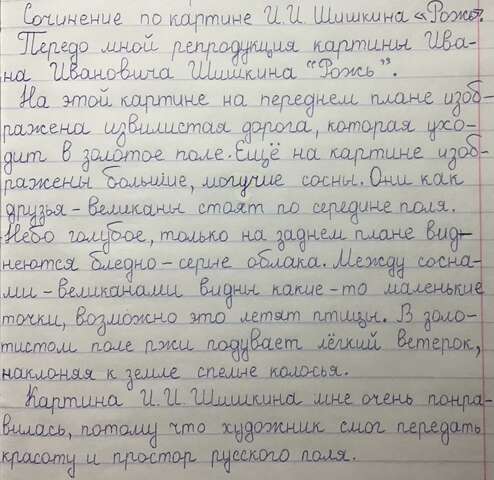 Сочинение по картине И.И. Шишкина «Рожь».
Передо мной репродукция картины Ива-
на Ивановича Шишкина "Рожь".
На этой картине на переднем плане изоб-
ражена извилистая дорога, которая ухо-
дит в золотое поле. Ещё на картине изоб-
ражены большие, могучие сосны. Они как
друзья - великаны стоят по середине поля.
Небо голубое, только на заднем плане вид-
неются бледно - серые облака. Между сосна-
ми - великанами видны какие - то маленькие
точки, возможно это летят птицы. В золо-
тистом поле ржи подувает лёгкий ветерок,
наклоняя к земле спелые колосья.
Картина И.И. Шишкина мне очень понра-
вилась, потому что художник смог передать
красоту и простор русского поля.